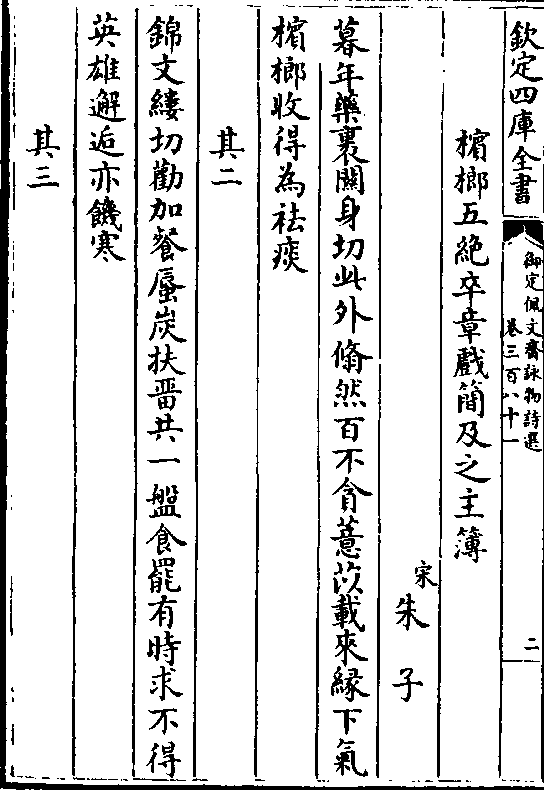 欽定四庫全書
御定佩文齋詠物詩選
卷三百八十一
二
檳榔五絶卒章戲簡及之主簿
宋
朱子
暮年藥裹闗身切此外翛然百不貪薏苡載來縁下氣
檳榔收得為祛痰
其二
錦文縷切勸加餐蜃炭扶畱共一盤食罷有時求不得
英雄邂逅亦饑寒
其三